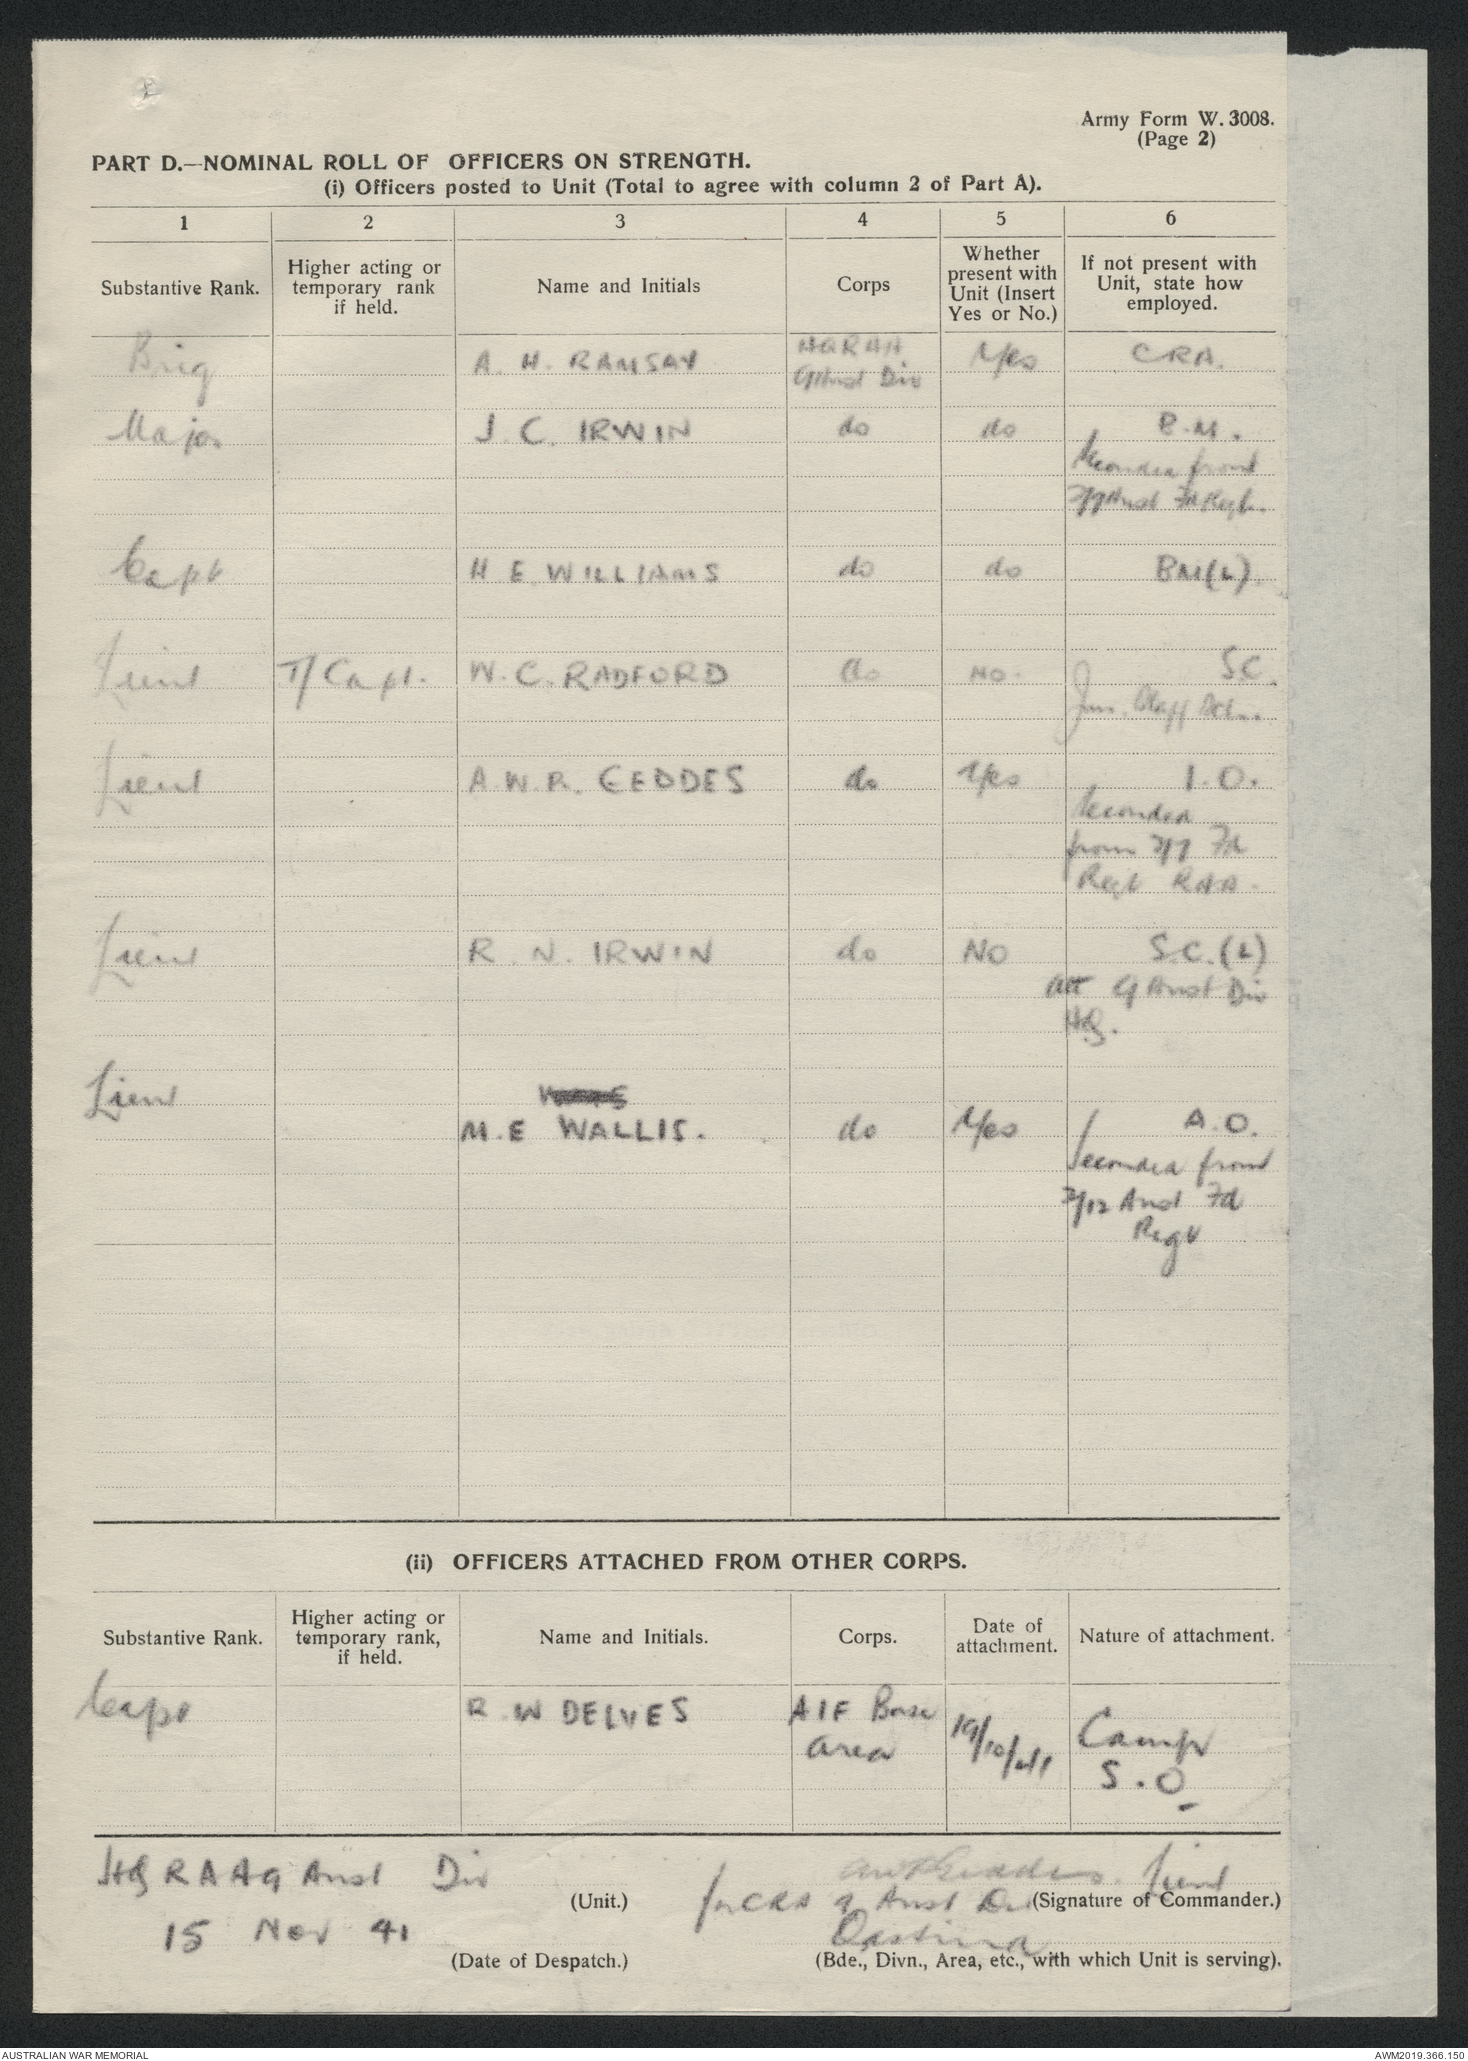 Army Form W. 3008.
(Page 2)
PART D.—NOMINAL ROLL OF OFFICERS ON STRENGTH.
(i) Officers posted to Unit (Total to agree with column 2 of Part A).
1 2 3 4 5 6
Substantive Rank. Higher acting or temporary rank if held. Name and Initials Corps Whether present with Unit (Insert Yes or No.) If not present with Unit, state how employed.
Brig A. H. RAMSAY HQRAA Yes CRA.
9 Aust Div
Major J. C. IRWIN do do B.M.
Seconded from
2/7 Aust Fd Regt.
Capt H E WILLIAMS do do BM(L).
Lieut T/Capt. W. C. RADFORD do NO. S.C.
Jun. Staff Sch.
Lieut A. W. R. GEDDES do Yes I.O.
Seconded
from 2/7 Fd
Regt RAA.
Lieut R. N. IRWIN do NO S.C.(L)
att 9 Aust Div
HQ.
Lieut
M.E WALLIS. do Yes A.O.
Seconded from
2/12 Aust Fd
Regt
(ii) OFFICERS ATTACHED FROM OTHER CORPS.
Substantive Rank. Higher acting or temporary rank, if held. Name and Initials. Corps. Date of attachment. Nature of attachment.
Capt R. W DELVES AIF Base 19/10/41 Camp
area S.O
HQ RAA 9 Aust Div AWRGeddes. Lieut
(Unit.) for CRA 9 Aust Div (Signature of Commander.)
15 Nov 41 Qastina
(Date of Despatch.) (Bde., Divn., Area, etc., with which Unit is serving).
AUSTRALIAN WAR MEMORIAL AWM2019.366.150